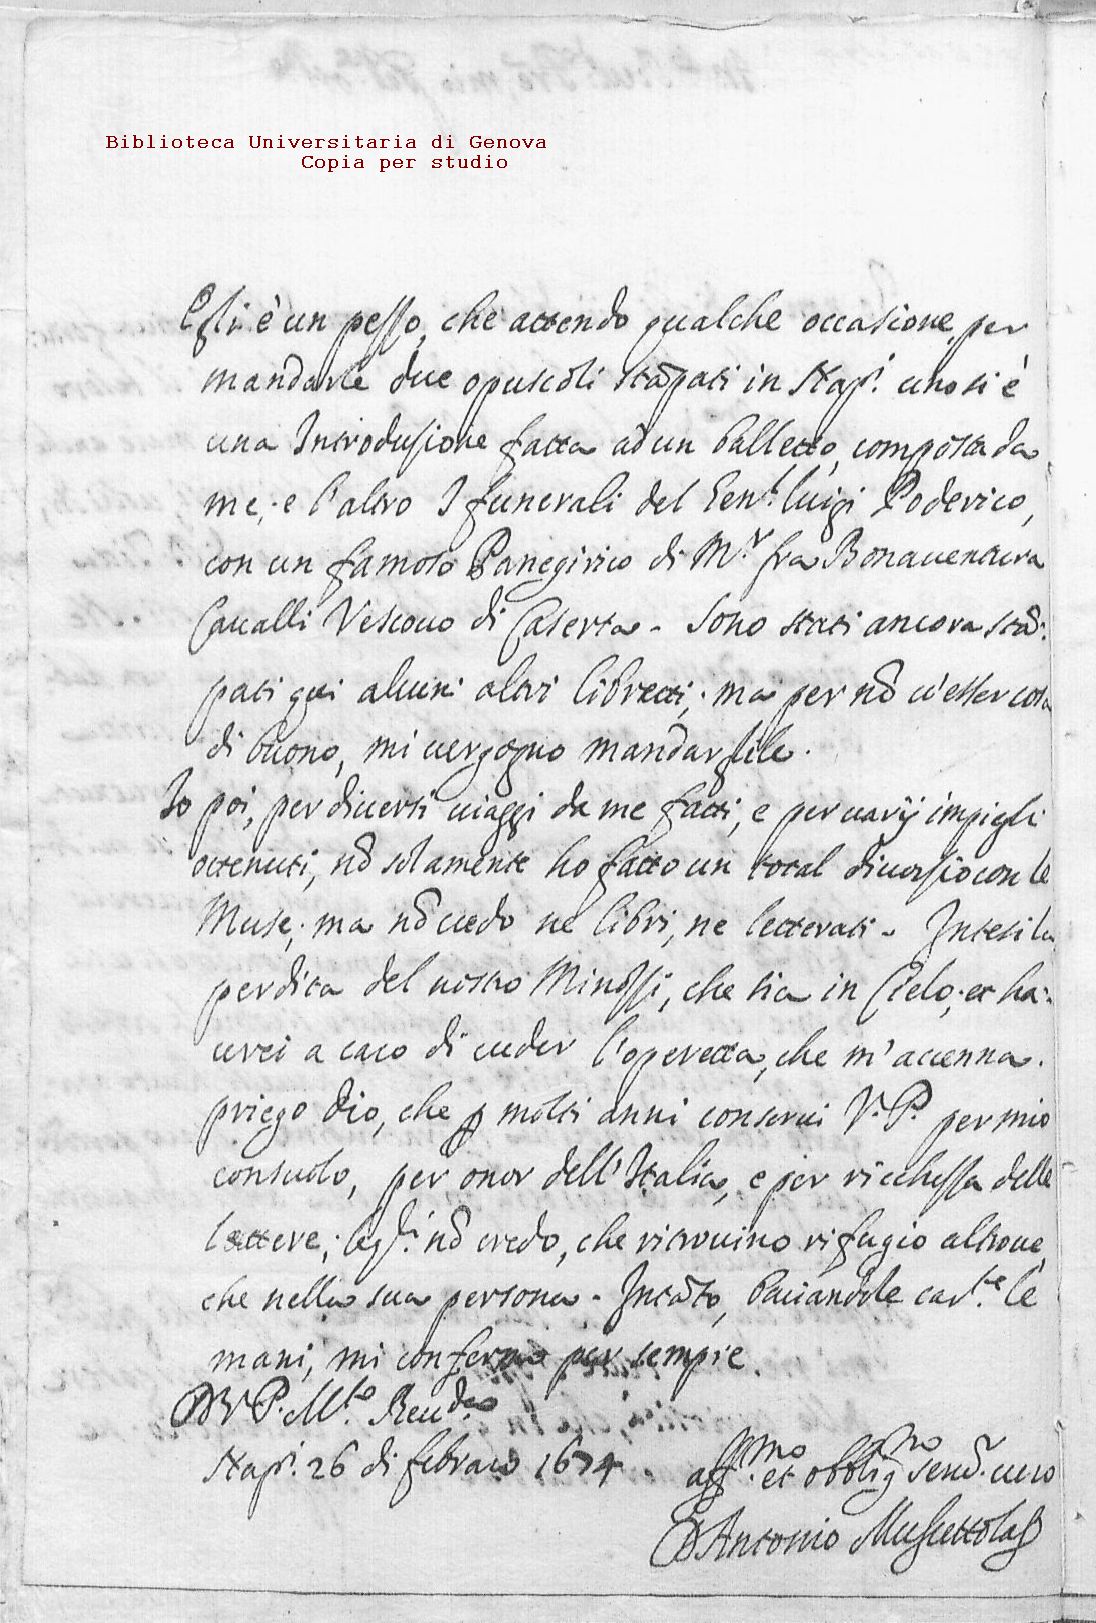 Biblioteca Universitaria di Genova
Copia per studio
Egli è un pesso, che attendo qualche occasione, per
mandarle due opuscoli stãpati in Nap.i uno si è
una Introdusione fatta ad un balletto, composta da
me; e l'altro I funerali del Gen.l luigi Poderico,
con un famoso Panegirico di M.r fra Bonauentura
Caualli Vescouo di Caserta. Sono stati ancora stã:
pati qui alcuni altri libretti; ma per nõ u'esser cosa
di buono, mi uergogno mandarglile.
Io poi, per diuersi uiaggi da me fatti, e per uarij impieghi
ottenuti, nõ solamente ho fatto un total diuorsio con le
Muse; ma nõ uedo ne libri, ne letterati. Intesi la
perdita del nostro Minossi, che sia in Cielo; et ha:
urei a caro di ueder l'operetta, che m'accenna.
priego Dio, che p molti anni conserui V.P. per mio
consuolo, per onor dell'Italia, e per ricchessa delle
lettere; le q.li nõ credo, che ritrouino rifugio altroue,
che nella sua persona. Intãto, baciandole car.te le
mani, mi confermo per sempre
D V.P. M.to Reu.da
Nap.i 26 di febraro 1674
aff.mo et obblig.mo seru.r uero
D Antonio Muscettola